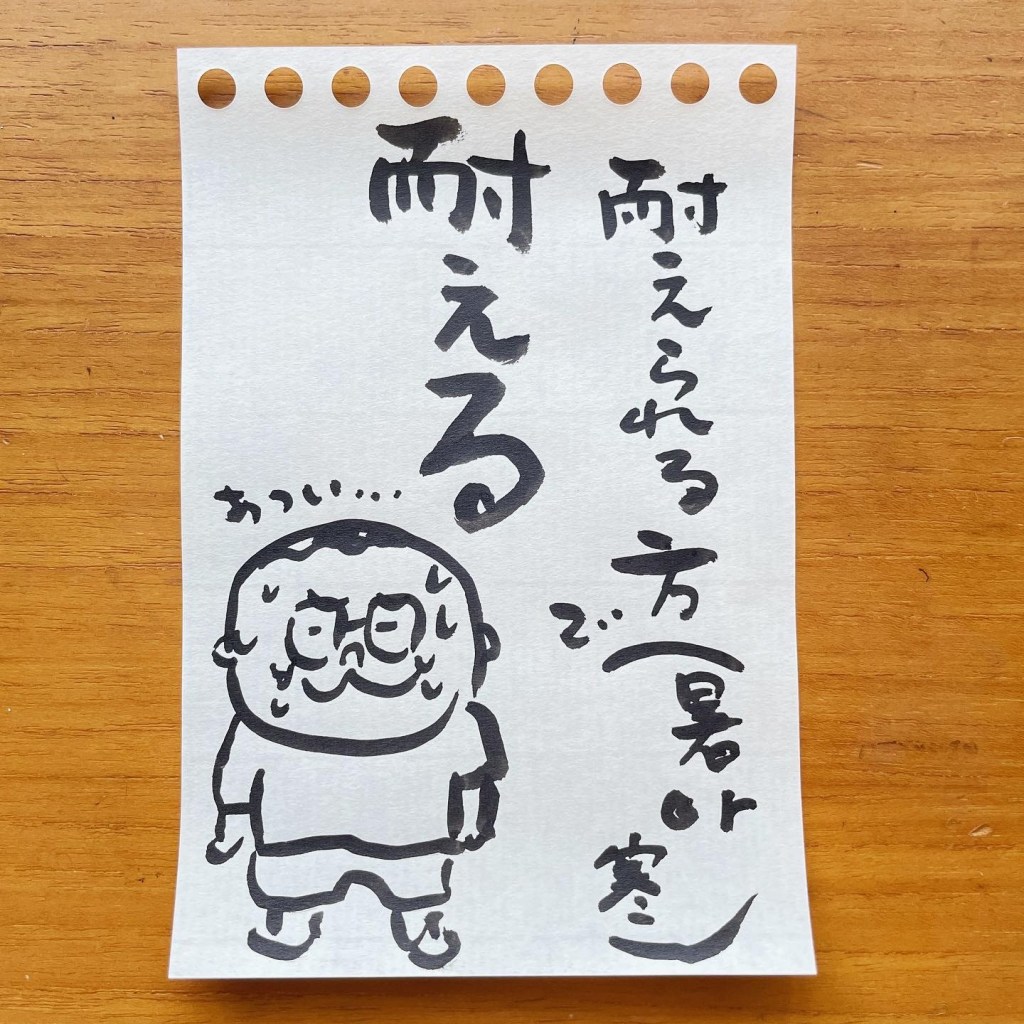 耐えられる方(暑or寒)
で…
耐える
あつい…